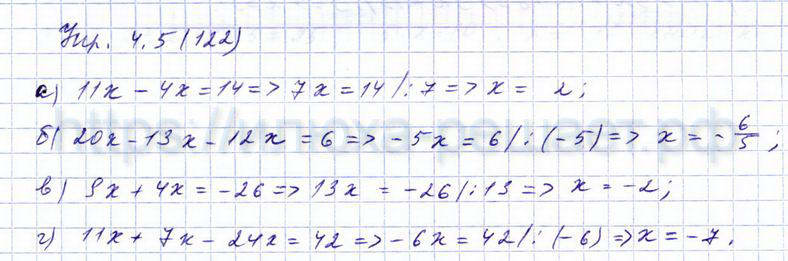 Упр. 4.5 (122)
а) 11x - 4x = 14 => 7x = 14 /: 7 => x = 2;
б) 20x - 13x - 12x = 6 => -5x = 6 /: (-5) => x = -6/5;
в) 9x + 4x = -26 => 13x = -26 /: 13 => x = -2;
г) 11x + 7x - 24x = 42 => -6x = 42 /: (-6) => x = -7.